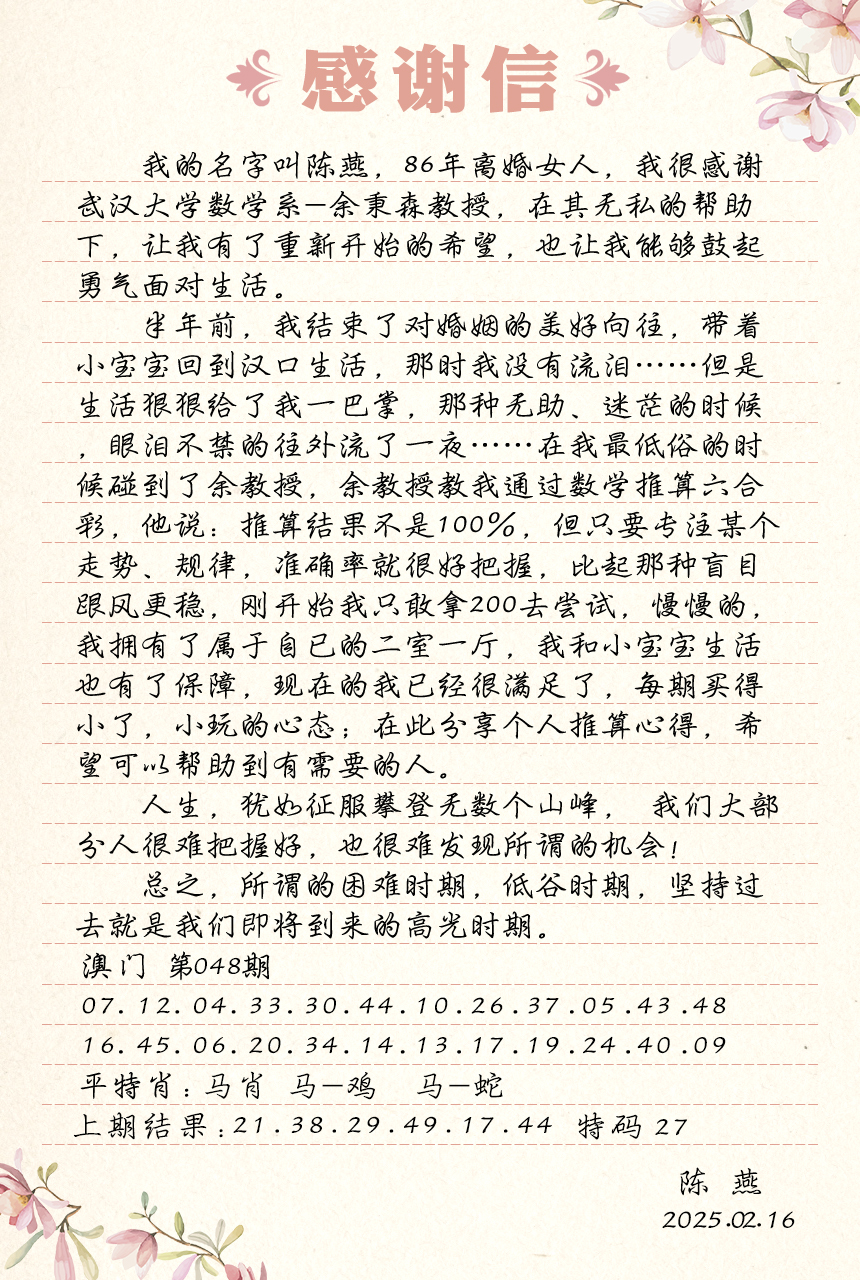 感谢信
我的名字叫陈燕，86年离婚女人，我很感谢
武汉大学数学系—余秉森教授，在其无私的帮助
下，让我有了重新开始的希望，也让我能够鼓起
勇气面对生活。
半年前，我结束了对婚姻的美好向往，带着
小宝宝回到汉口生活，那时我没有流泪……但是
生活狠狠给了我一巴掌，那种无助、迷茫的时候
，眼泪不禁的往外流了一夜……在我最低俗的时
候碰到了余教授，余教授教我通过数学推算六合
彩，他说：推算结果不是100%，但只要专注某个
走势、规律，准确率就很好把握，比起那种盲目
跟风更稳，刚开始我只敢拿200去尝试，慢慢的，
我拥有了属于自已的二室一厅，我和小宝宝生活
也有了保障，现在的我已经很满足了，每期买得
小了，小玩的心态；在此分享个人推算心得，希
望可以帮助到有需要的人。
人生，犹如征服攀登无数个山峰， 我们大部
分人很难把握好，也很难发现所谓的机会！
总之，所谓的困难时期，低谷时期，坚持过
去就是我们即将到来的高光时期。
澳门 第048期
07.12.04.33.30.44.10.26.37.05.43.48
16.45.06.20.34.14.13.17.19.24.40.09
平特肖：马肖 马—鸡 马—蛇
上期结果：21.38.29.49.17.44 特码 27
陈 燕
2025.02.16